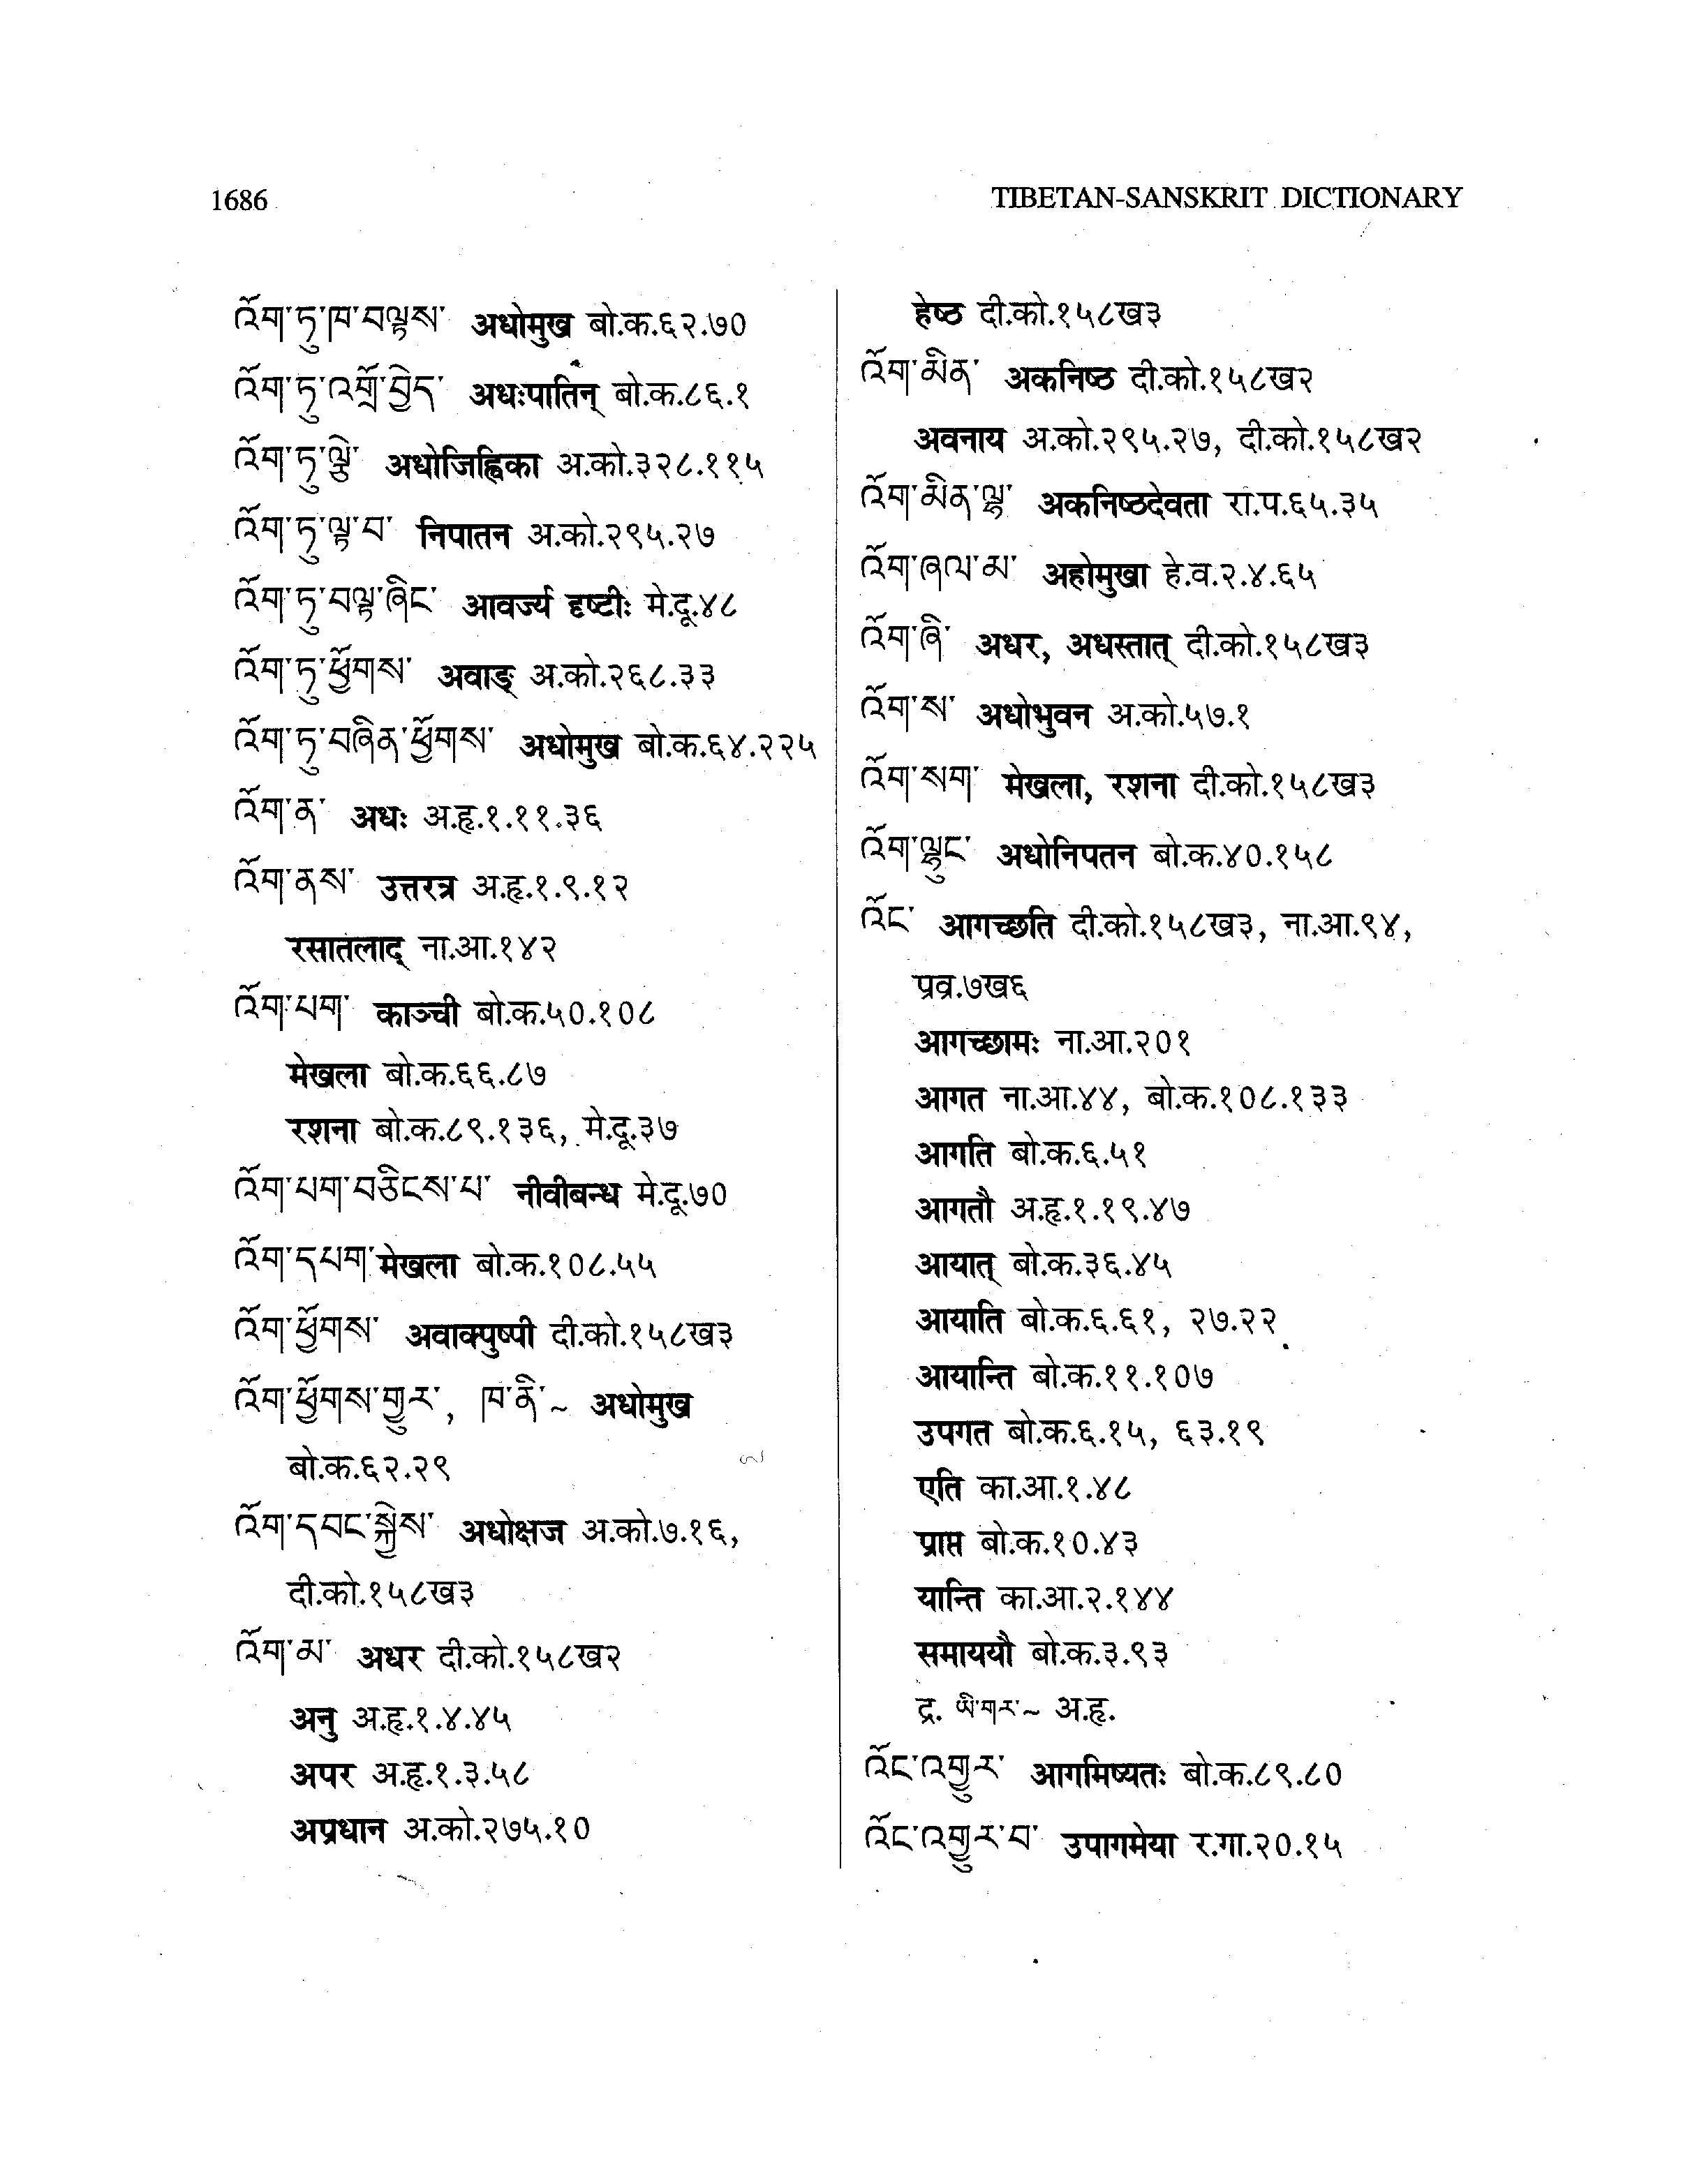 1686
TIBETAN-SANSKRIT DICTIONARY
འོག་ཏུ་ཁ་བལྟས་ अधोमुख बो.क.६२.७०
འོག་ཏུ་འགྲོ་བྱེད་ अधःपातिन् बो.क.८६.१
འོག་ཏུ་ལྕེ་ अधोजिह्विका अ.को.३२८.११५
འོག་ཏུ་ལྟ་བ་ निपातन अ.को.२९५.२७
འོག་ཏུ་བལྟ་ཞིང་ आवर्ज्य दृष्टीः मे.दू.४८
འོག་ཏུ་ཕྱོགས་ अवाङ् अ.को.२६८.३३
འོག་ཏུ་བཞིན་ཕྱོགས་ अधोमुख बो.क.६४.२२५
འོག་ན་ अधः अ.हृ.१.११.३६
འོག་ནས་ उत्तरत्र अ.हृ.१.९.१२
रसातलाद् ना.आ.१४२
འོག་པག་ काञ्ची बो.क.५०.१०८
मेखला बो.क.६६.८७
रशना बो.क.८९.१३६, मे.दू.३७
འོག་པག་བཅིངས་པ་ नीवीबन्ध मे.दू.७०
འོག་དཔག་ मेखला बो.क.१०८.५५
འོག་ཕྱོགས་ अवाक्पुष्पी दी.को.१५८ख३
འོག་ཕྱོགས་གྱུར་, ཁ་ནི་~ अधोमुख
बो.क.६२.२९
འོག་དབང་སྐྱེས་ अधोक्षज अ.को.७.१६,
दी.को.१५८ख३
འོག་མ་ अधर दी.को.१५८ख२
अनु अ.हृ.१.४.४५
अपर अ.हृ.१.३.५८
अप्रधान अ.को.२७५.१०
हेष्ठ दी.को.१५८ख३
འོག་མིན་ अकनिष्ठ दी.को.१५८ख२
अवनाय अ.को.२९५.२७, दी.को.१५८ख२
འོག་མིན་ལྷ་ अकनिष्ठदेवता रा.प.६५.३५
འོག་ཞལ་མ་ अहोमुखा हे.व.२.४.६५
འོག་ཞི་ अधर, अधस्तात् दी.को.१५८ख३
འོག་ས་ अधोभुवन अ.को.५७.१
འོག་སག་ मेखला, रशना दी.को.१५८ख३
འོག་ལྷུང་ अधोनिपतन बो.क.४०.१५८
འོང་ आगच्छति दी.को.१५८ख३, ना.आ.९४,
प्रव्र.७ख६
आगच्छामः ना.आ.२०१
आगत ना.आ.४४, बो.क.१०८.१३३
आगति बो.क.६.५१
आगतौ अ.हृ.१.१९.४७
आयात् बो.क.३६.४५
आयाति बो.क.६.६१, २७.२२
आयान्ति बो.क.११.१०७
उपगत बो.क.६.१५, ६३.१९
एति का.आ.१.४८
प्राप्त बो.क.१०.४३
यान्ति का.आ.२.१४४
समाययौ बो.क.३.९३
द्र. ཡི་གར་~ अ.हृ.
འོང་འགྱུར་ आगमिष्यतः बो.क.८९.८०
འོང་འགྱུར་བ་ उपागमेया र.गा.२०.१५